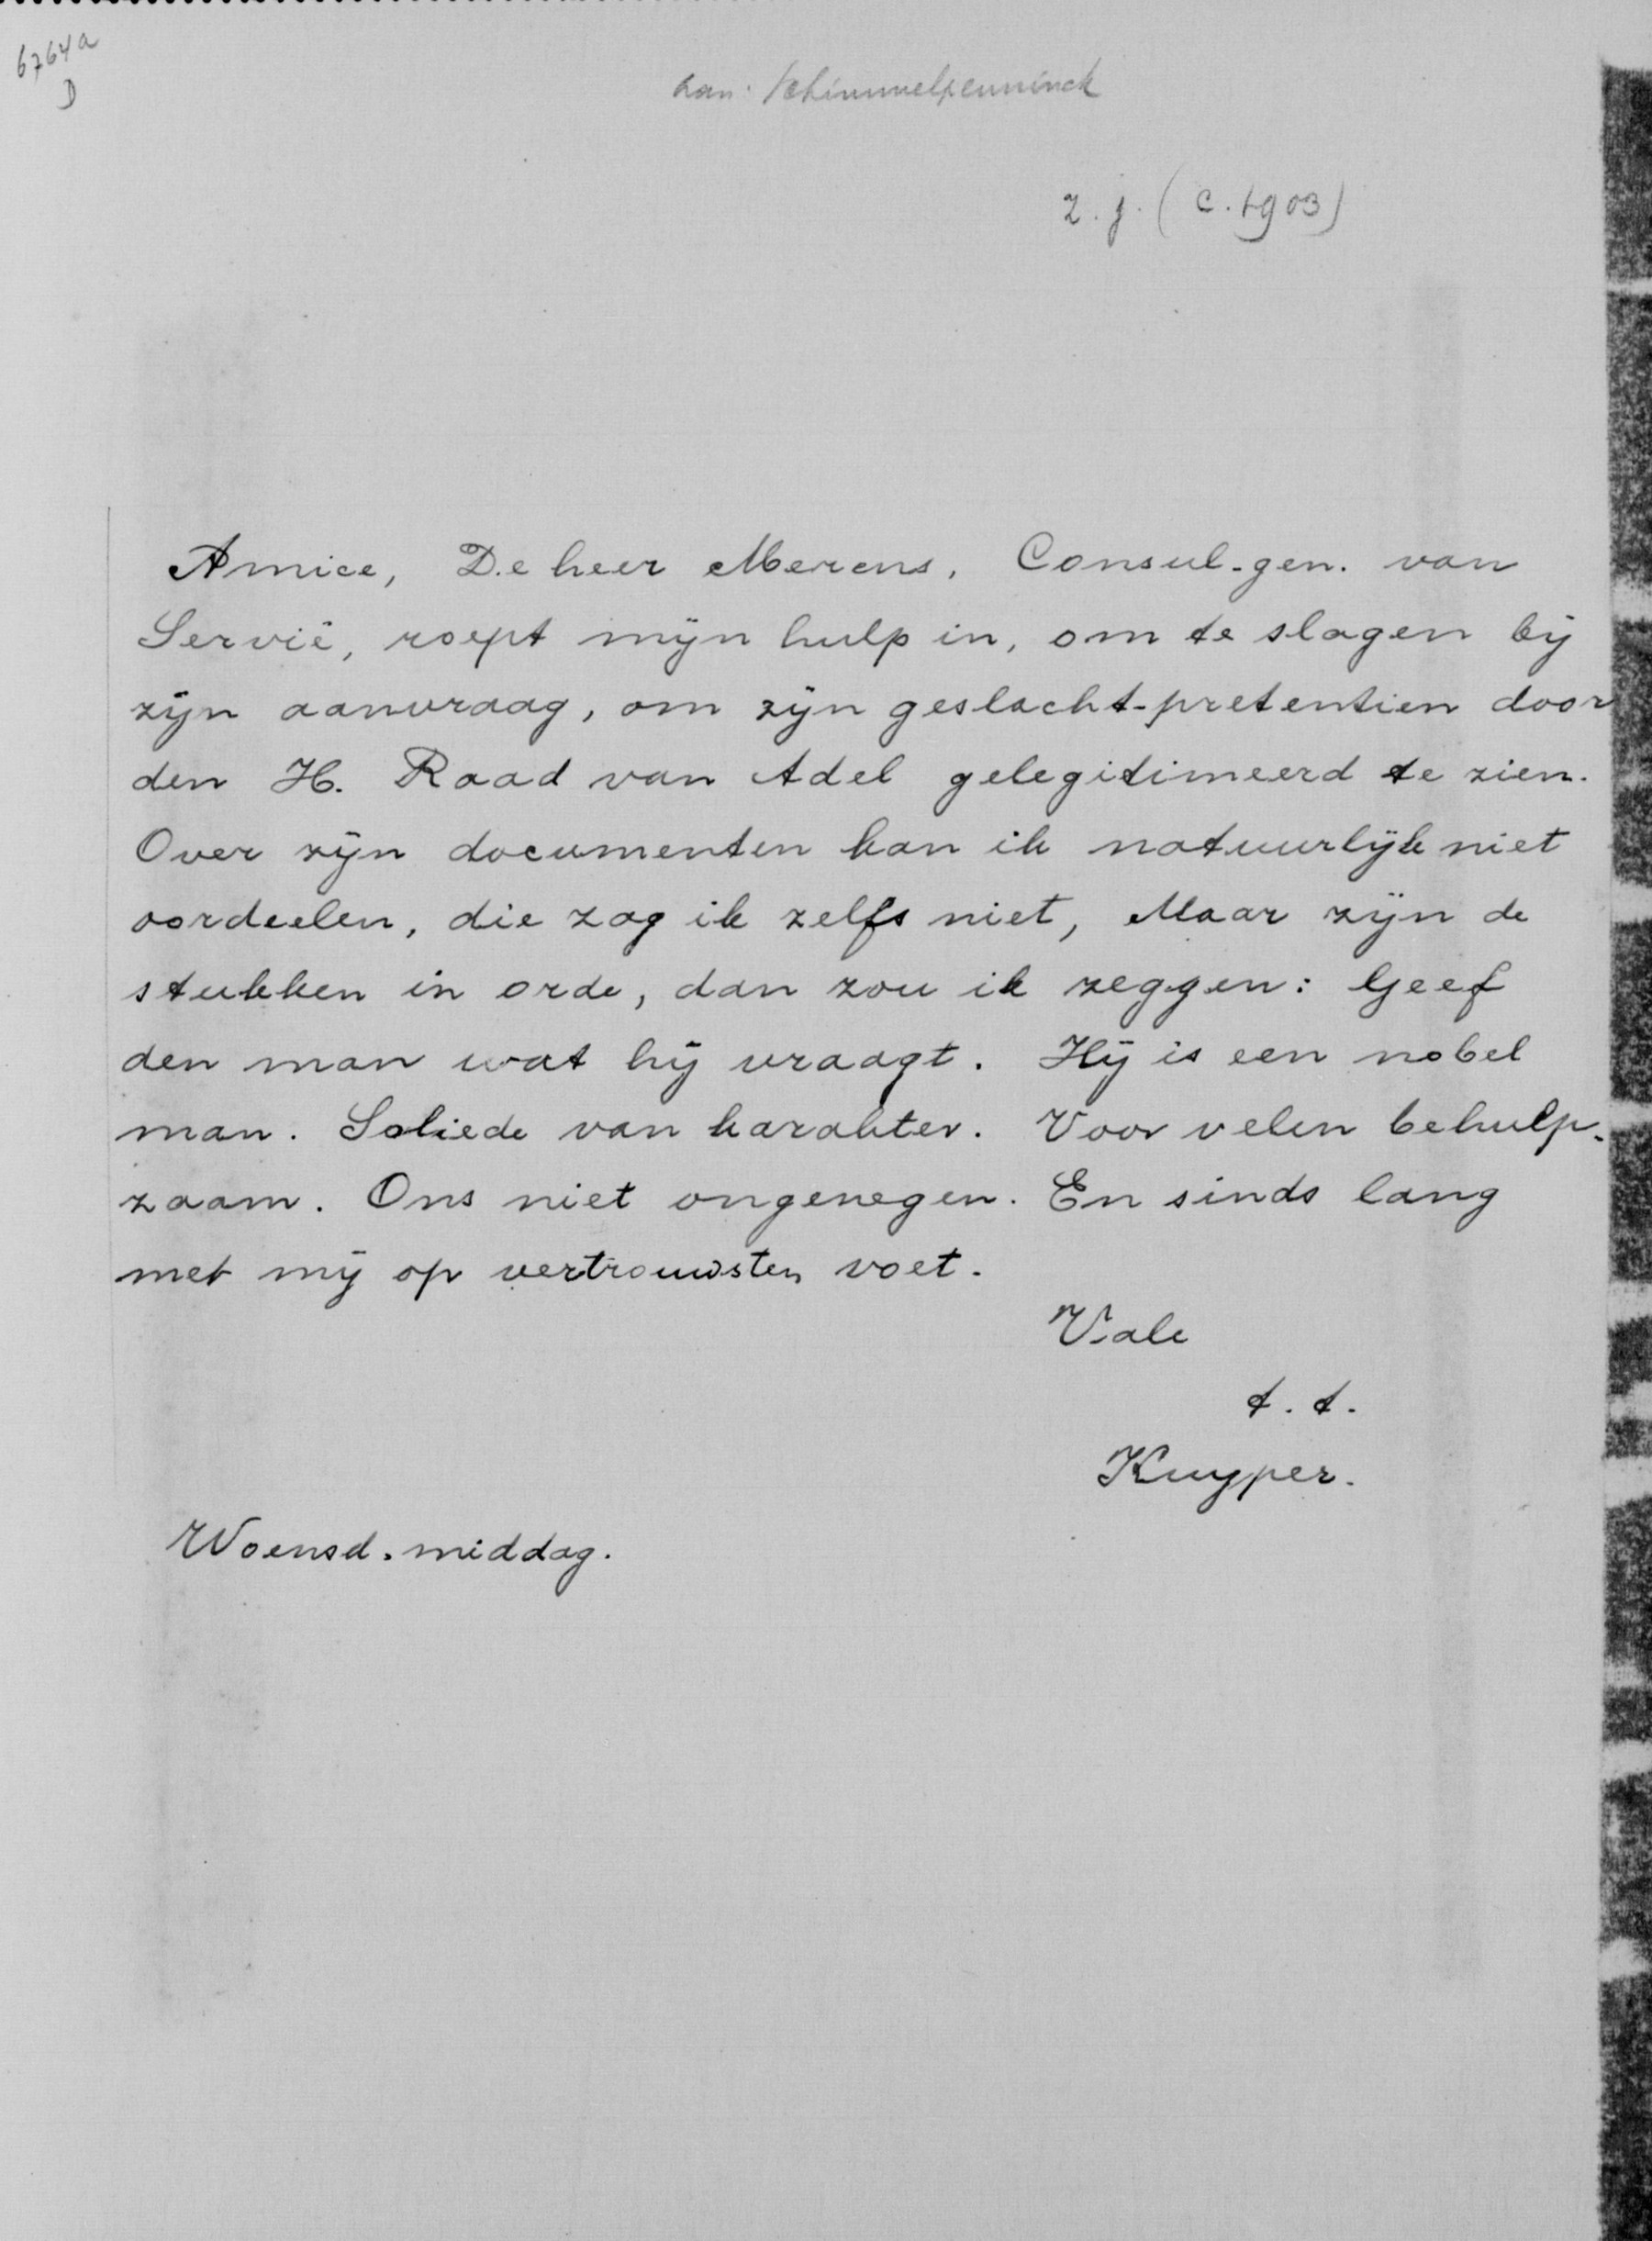 6764a
D
aan: Schimmelpenninck
z.j. (c. 1903)
Amice, De heer Merens, Consul-gen. van
Servië, roept mijn hulp in, om te slagen bij
zijn aanvraag, om zijn geslacht-pretentien door
den H. Raad van Adel gelegitimeerd te zien.
Over zijn documenten kan ik natuurlijk niet
oordeelen, die zag ik zelfs niet, Maar zijn de
stukken in orde, dan zou ik zeggen: Geef
den man wat hij vraagt. Hij is een nobel
man. Soliede van karakter. Voor velen behulp-
zaam. Ons niet ongenegen. En sinds lang
met mij op vertrouwsten voet.
Vale
t.t.
Kuyper.
Woensd. middag.